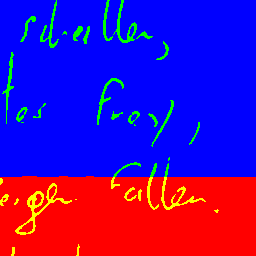 schallen,
tes Frey,
eigen Fallen.